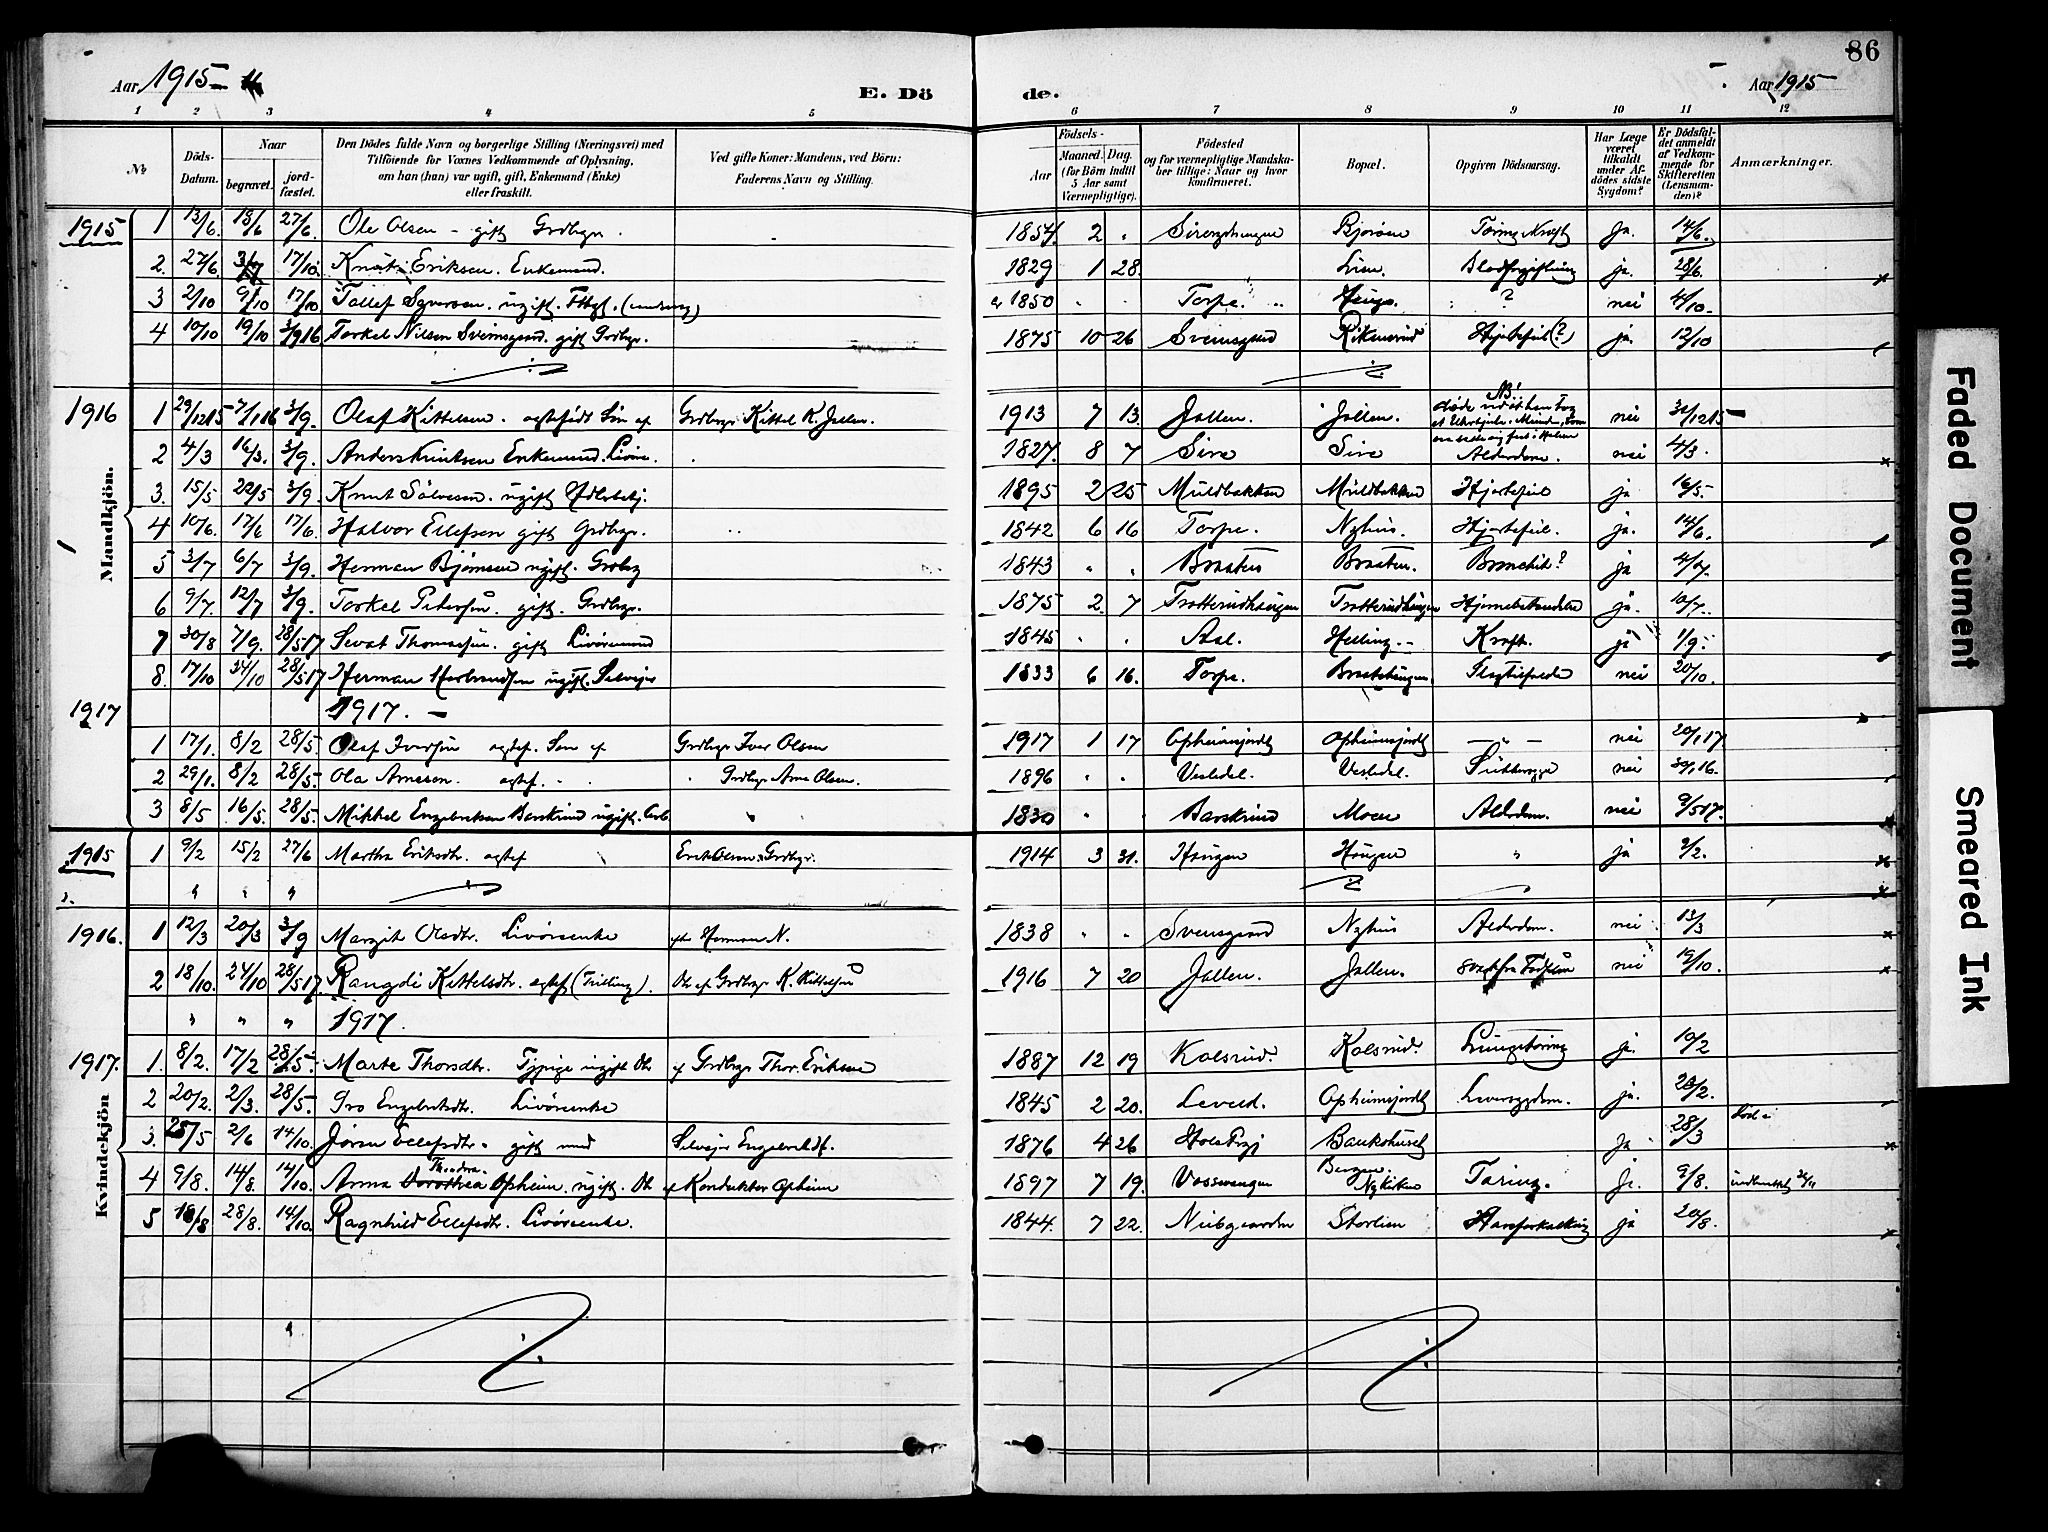 86
Aar 1915 - 16
E. Dö de.
Aar 1915
1 2 3 4 5 6 7 8 9 10 11 12
No
Döds-Datum.
Naar
begravet.
jordfæstet.
Den Dödes fulde Navn og borgerlige Stilling (Næringsvei) med
Tilföiende for Voxnes Vedkommende af Oplysning,
om han (hun) var ugift, gift, Enkemand (Enke)
eller fraskilt.
Ved gifte Koner: Mandens, ved Börn:
Faderens Navn og Stilling.
Födsels-
Aar
Maaned. Dag.
(for Börn indtil
5 Aar samt
Værnepligtige).
Födested
og for værnepligtige Mandskaber tillige: Naar og hvor
konfirmeret.
Bopæl.
Opgiven Dödsaarsag.
Har Læge
været
tilkaldt
under Afdödes sidste
Sygdom?
Er Dödsfaldet anmeldt
af Vedkommende for
Skifteretten
(Lensmanden)?
Anmærkninger.
Mandkjön.
1915 1 13/6. 18/6 27/6. Ole Olsen - gift Grdbgr. 1857. 2 " Bjoröen Ja. 14/6.
2. 27/6. 17/10. Knut Eriksen. Enkemand. 1829 1 28. Blodforgiftning ja. 28/6.
3 2/10 9/10 17/10 Tollef Syversen. ugift. 1850 " " Torpe. Haugo. ? nei 4/10.
4 10/10 19/10 3/9 16 Torkel Nilsen Sveinsgard. gift Grdbgr. 1875 10 26 Svensgard Hjertefeil (?) ja. 12/10
1916 1 29/12 15 7/1 16 3/9. Olaf Kittelsen. ægtefödt Sön af Grdbgr. Kittel K. Jallen. 1913 7 13. Jallen. Jallen. nei 31/12 15
2 4/3 16/3. 3/9. Anders Knutsen Enkemand. 1827. 8 7 Sire Sire Alderdom. nei 4/3.
3. 15/5 22/5 3/9. Knut Sölvesen. ugift 1895 2 25 Muldbakken Muldbakken Hjertefeil ja 16/5.
4 10/6. 17/6 17/6. Halvor Eilefsen gift Grdbgr. 1842 6 16 Torpe. Nyhus. Hjertefeil. ja. 14/6.
5 3/7 6/7 3/9. Herman Björnsen ugift. 1843 " " Braaten Braaten. Bronchit? ja 4/7.
6 9/7. 12/7 3/9. Torkel Petersen. gift. Grdbgr. 1875 2. 7 Trötterudhaugen Trötterudhaugen Hjernebetændelse ja. 10/7.
7 30/8 7/9. 28/5 17 Sevat Thomassen. gift Livöremand 1845 " " Aal. Helling Kræft. ja 1/9.
8. 17/10 24/10 28/5 17 Herman Herbrandsen ugift. Selveier 1833 6 16. Torpe. Slagtilfælde nei 20/10.
1917 1917.
1 17/1. 8/2 28/5 Olaf Iversen ægtef. Sön af Grdbgr Iver Olsen 1917 1 17 Opheimsjordet Opheimsjordet — " — nei 20/1 17
2 29/1. 8/2 28/5. Ola Arnesen. ægtef. " Grdbgr Arne Olsen. 1896 " " Vesledal. Vesledal. nei 30/1 16.
3 8/5 16/5. 28/5. Mikkel Engebretsen Barskrind ugift. Arb. 1830 " " Barskrind Moen Alderdom. nei 9/5 17.
Kvindekjön
1915 1 9/2 15/2 27/6 Martha Eriksdtr. ægtef Erik Olsen Grdbgr. 1914 3 31. Haugen Haugen " ja 9/2.
" " "
1916. 1 12/3 20/3 3/9 Margit Olsdtr. Livörsenke eft. Herman N. 1838 " " Svensgaard Nyhus Alderdom. nei 13/3
2 18/10. 24/10 28/5 17. Rangdi Kittelsdtr. ægtef (Trilling). Dtr af Grdbgr K. Kittelsen 1916 7 20 Jallen. Jallen. nei 19/10.
" " " 1917.
1917. 1. 8/2. 17/2 28/5. Marte Thorsdtr. Tjpige ugift Dtr af Grdbgr Thor. Eriksen 1887 12 19 Kolsrud. Kolsrud. Lungetæring ja. 10/2
2 20/2. 2/3. 28/5. Gro Engebretsdtr. Livörsenke 1845 2 20. Leveld. Opheimsjordet Leversygdom. ja. 23/2.
3. 25/5 2/6 14/10. Jöran Eilefsdtr. gift med Selveier Engebret 1876 4 26 Ja 28/3
4 9/8. 14/8. 14/10. Anna Dorothea Theodora. Opheim. ugift. Dtr af Konduktör Opheim 1897 7 19. Vossevangen Bergen. Nykirken Tæring. Ja. 9/8. indberettet
5 18/8 28/8. 14/10. Ragnhild Eilefsdtr. Livörsenke. 1844. 7 22. Nubgaarden Storlien Aareforkalkning ja 20/8.
Faded Document
Smeared Ink